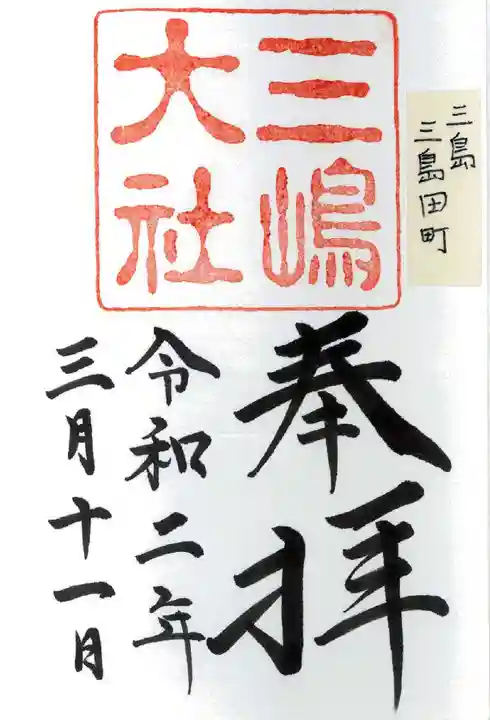 三島
三島田町
三嶋
大社
奉拝
令和二年
三月十一日